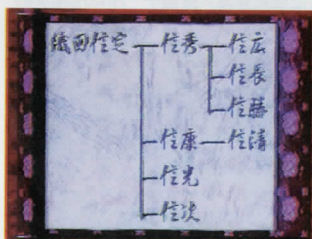 織田信定 信秀 信広
信長
信勝
信康 信清
信光
信次